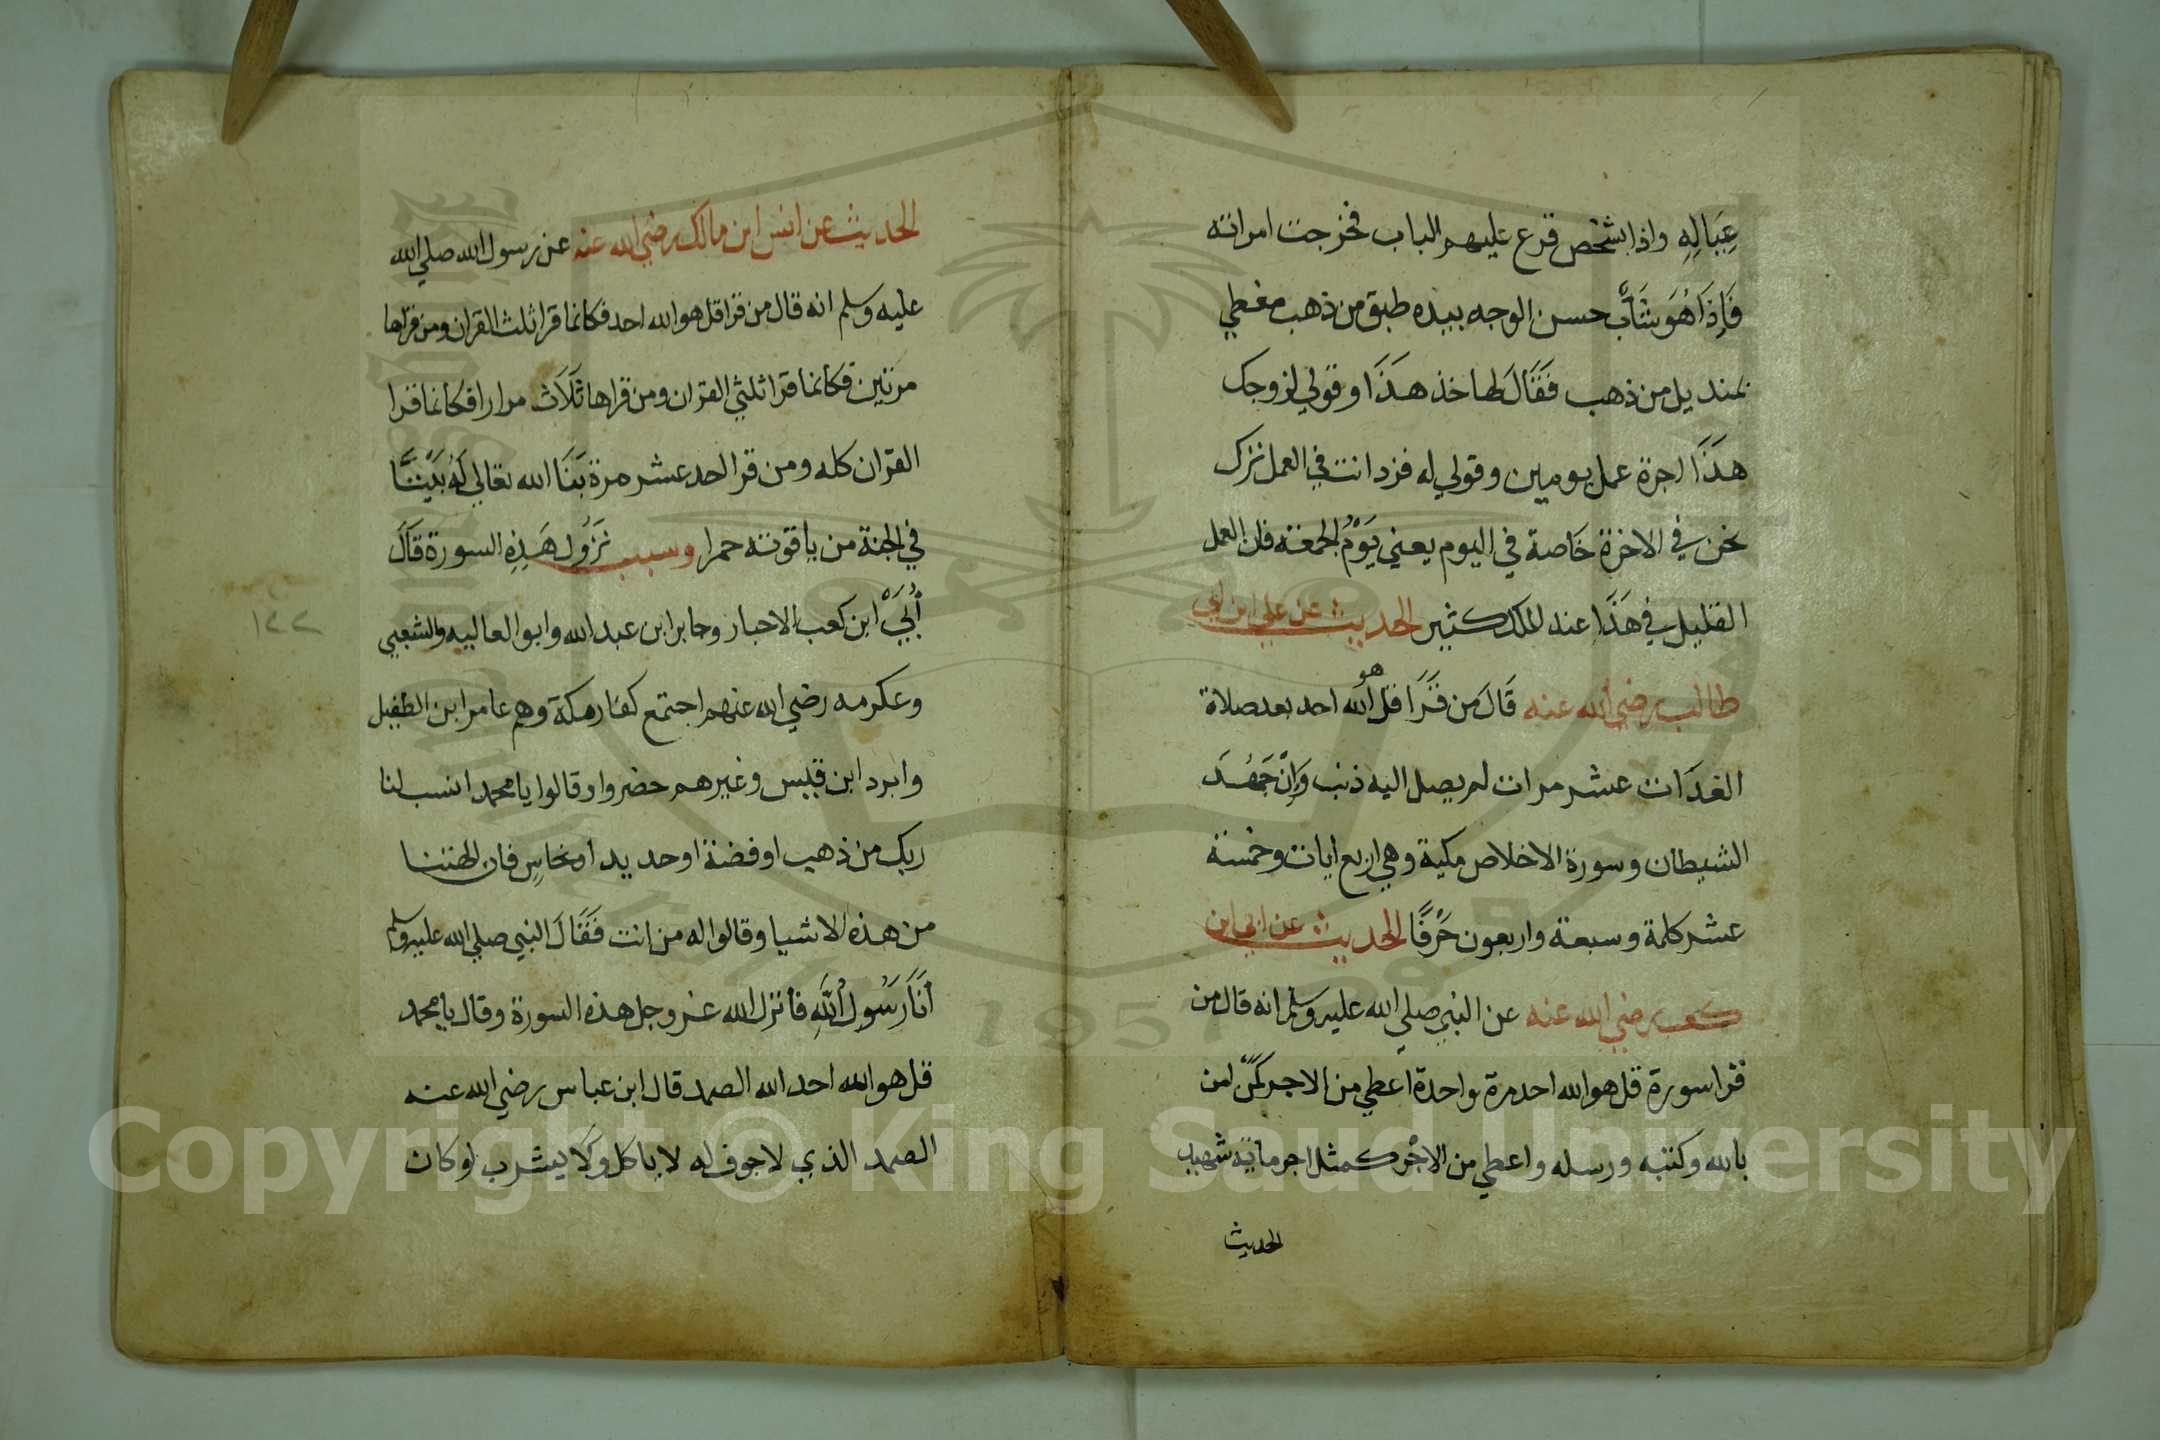 عِيَالِهِ واذا بشخص قرع عليهم الباب فخرجت امراته
فَاِذَا هُوَ شَابٌ حسن الوجه بيده طبق من ذهب مغطي
بمنديل من ذهب فَقَالَ لها خذ هَذَا وقولي لزوجك
هَذَا اجرة عمل يومين وقولي له فزد انت في العمل نزك
نحن في الاخرة خَاصة في اليوم يعني يَوْمُ الجمعة فان العمل
القليل في هَذَا عند الملك كثير الحديث عن علي ابن ابي
طالب رضي الله عنه قَالَ من قَرَا قل هو الله احد بعد صلاة
الغدَات عشر مرات لم يصل اليه ذنب وَاِنْ جَهُدَ
الشيطان وسورة الاخلاص مكية وهي اربع ايات وخمسة
عشر كلمة وسبعة واربعون حَرْفًا الحديث عن ابي ابن
كعب رضي الله عنه عن النبي صلي الله عليه وسلم انه قال من
قرا سورة قل هو الله احد مرة واحدة اعطي من الاجر كَمَنْ امن
بالله وكتبه ورسله واعطي من الاجْر كمثل اجر ماية شهيد
الحديث
الحديث عن انس ابن مالك رضي الله عنه عن رسول الله صلي الله
عليه وسلم انه قال من قرا قل هو الله احد فكانما قرا ثلث القران ومن قراها
مرتين فكانما قرا ثلثي القران ومن قراها ثَلَاث مرار افكانما قرا
القران كله ومن قرا احد عشر مرة بَنَا الله تعالي لَهُ بَيْتًا
في الجنة من ياقوته حمرا وسبب نزُول هَذِهِ السورة قَالَ
أُبَيّ ابن كعب الاحبار وجابر ابن عبد الله وابو العاليه والشعبي
وعكرمه رضي الله عنهم اجتمع كفار مكة وهم عامر ابن الطفيل
وابرد ابن قيس وغيرهم حضروا وقالوا يا محمد انسب لنا
ربك من ذهب او فضة او حديد او نحاس فان الهتنا
من هذه الاشيا وقالوا له من انت فَقَالَ النبي صلي الله عليه وسلم
أَنَا رَسُولُ اللَّهِ فانزل الله عز وجل هذه السورة وقال يا محمد
قل هو الله احد الله الصمد قال ابن عباس رضي الله عنه
الصمد الذي لا جوف له لا ياكل وَلَا يشرب لو كان
١٢٢
Copyright © King Saud University
1957